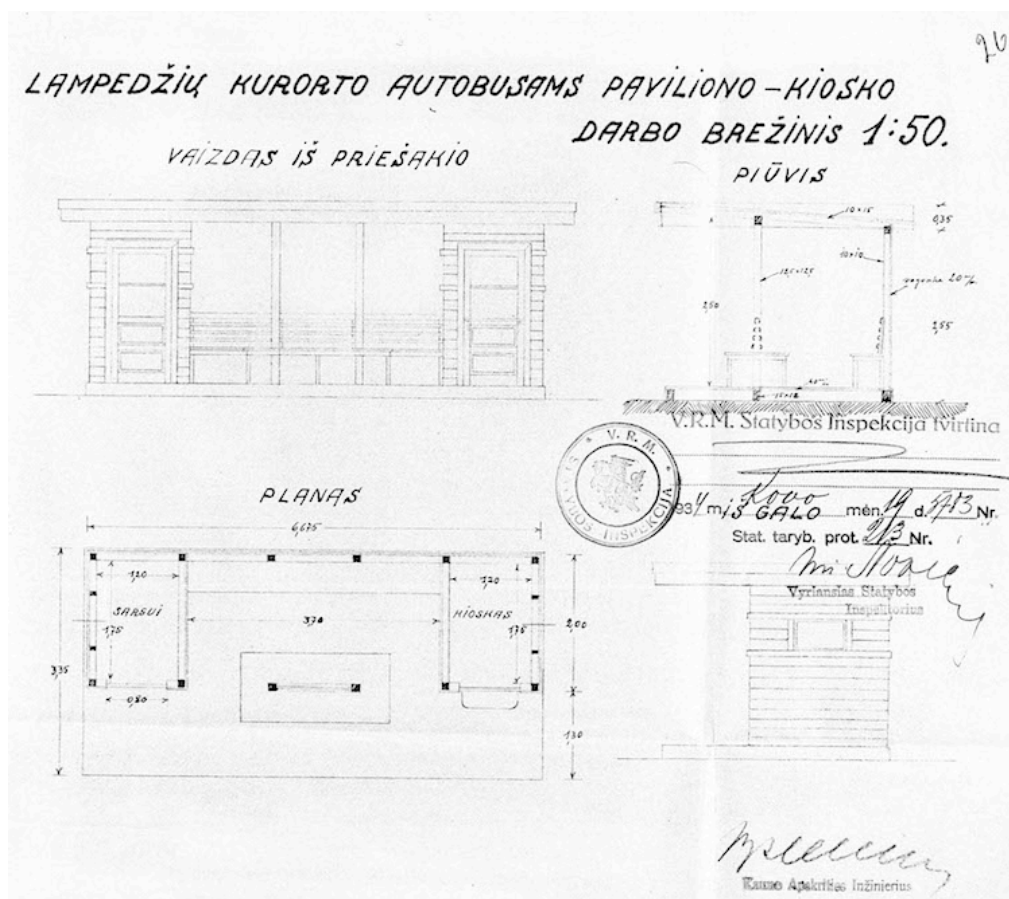 26
LAMPEDŽIŲ KURORTO AUTOBUSAMS PAVILIONO – KIOSKO
DARBO BREŽINIS 1:50.
VAIZDAS IŠ PRIEŠAKIO
PIŪVIS
10×15
0,35
10×10
12,5×12,5
2,50
2,55
15×12
V.R.M. Statybos Inspekcija tvirtina
V. R. M.
STATYBOS INSPEKCIJA
193 m. Kovo mėn. 19 d. 5783 Nr.
IŠ GALO
Stat. taryb. prot. 213 Nr.
Vyriausias Statybos
Inspektorius
PLANAS
6,675
1,20
1,20
SARGUI
1,75
3,70
KIOSKAS
1,75
2,00
3,35
0,80
1,30
Kauno Apskrities Inžinierius